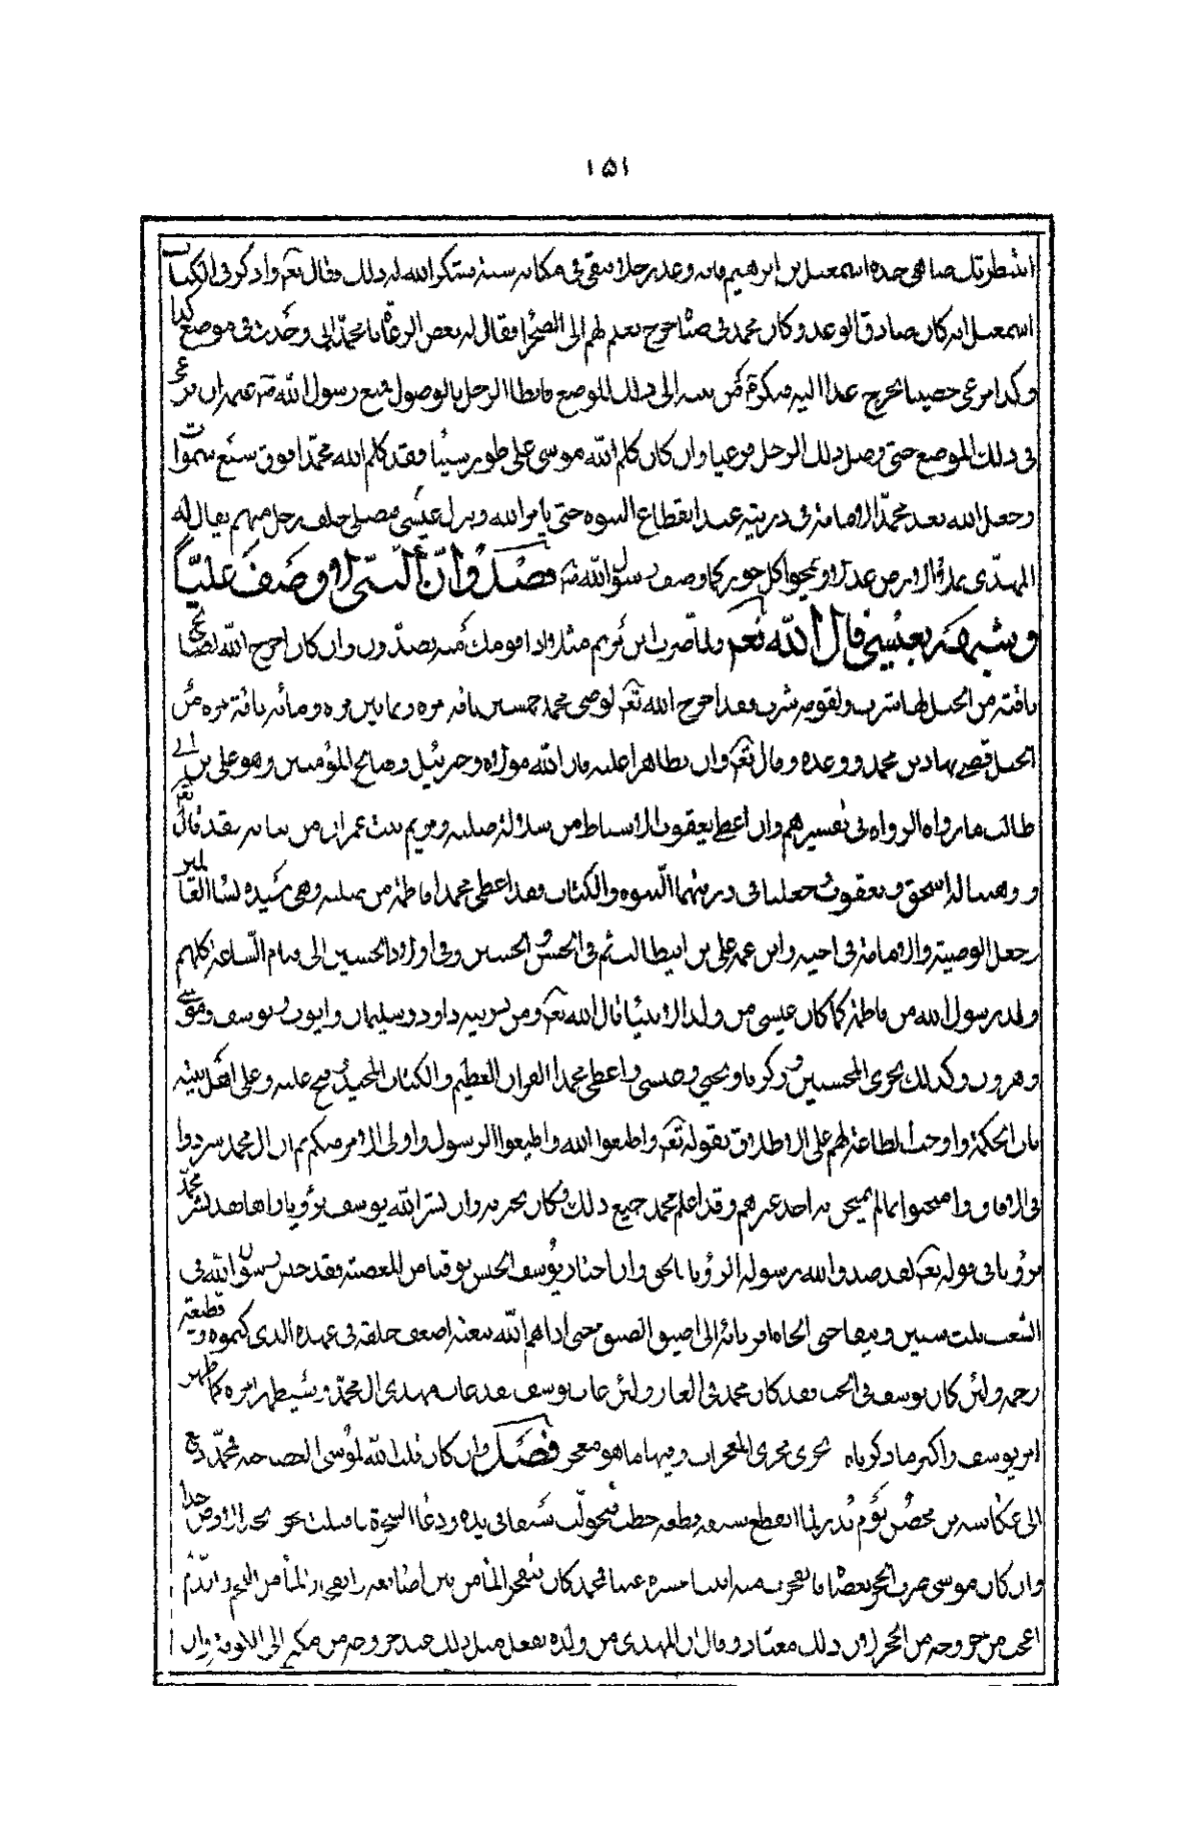 ١٥١
انتظرتك صاهى جده اسمعيل بن ابرهيم فانه وعد رجلا فبقى فى مكانه سنة فشكر الله له ذلك وقال تعم واذكر فى الكتاب
اسمعيل انه كان صادق الوعد وكان محمد فى صباه خرج بغنم لهم الى الصحرا فقال له بعض الرعاة يا محمد انى وجدت فى موضع كذا
وكذا مرعى خصيبا نخرج غدا اليه فبكرة من بيته الى ذلك الموضع فابطا الرجل بالوصول رسول الله غنمه ان يرعى
فى ذلك الموضع حتى وصل ذلك الرجل فرعيا وان كان كلم الله موسى على طور سينا فقد كلم الله محمدا فوق سبع سموات
وجعل الله بعد محمد الامامة فى ذريته عند انقطاع النبوة حتى يامر الله وينزل عيسى فيصلى خلف رجل منهم يقال له
المهدى يملا الارض عدلا ويمحوا كل جور كما وصف رسول الله فصل وان النبى وصف عليا
وشبهه بعيسى قال الله تعم ولما ضرب ابن مريم مثلا اذا قومك منه يصدون وان كان اخرج الله لصالح
ناقة من الجبل لها شرب ولقومه شرب فقد اخرج الله تعم لوصى محمد خمسين ناقة مرة وثمانين مرة ومائة ناقة مرة من
الجبل قضى بها دين محمد ووعده وقال تعم وان تظاهرا عليه فان الله مولاه وجبرئيل وصالح المؤمنين وهو على بن ابى
طالب ما رواه الرواة فى تفسيرهم وان اعطى يعقوب الاسباط من سلالة صلبه ومريم بنت عمران من بناته فقد قال تعم
ووهبنا له اسحق ويعقوب وجعلنا فى ذريتهما النبوة والكتاب فقد اعطى محمدا فاطمة من صلبه وهى سيدة نسا العالمين
وجعل الوصية والامامة فى اخيه وابن عمه على بن ابيطالب ثم فى الحسن والحسين وفى اولاد الحسين الى قيام الساعة كلهم
ولد رسول الله من فاطمة كما كان عيسى من ولد الانبيا قال الله تعم ومن ذريته داود وسليمان وايوب ويوسف وموسى
وهرون وكذلك نجزى المحسنين وزكريا ويحيى وعيسى واعطى محمدا القران العظيم والكتاب المجيد وفتح عليه وعلى اهل بيته
باب الحكمة واوجب الطاعة لهم على الاطلاق بقوله تعم واطيعوا الله واطيعوا الرسول واولى الامر منكم ثم ان ال محمد شردوا
فى الافاق وامتحنوا بما لم يمتحن به احد غيرهم وقد اعلم محمد جميع ذلك وكان يخبر به وان بشر الله يوسف برؤيا راها فقد بشر محمد
برؤيا فى قوله تعم لقد صدق الله رسوله الرؤيا بالحق وان اختار يوسف الحبس توقيا من المعصية فقد حبس رسول الله فى
الشعب ثلث سنين ونيفا حتى الجاه اقرباؤه الى اضيق الضيق حتى ابادهم الله ببعثه اضعف خلقه فى عهده الذى كتبوه فى قطيعة
رحمه ولئن كان يوسف فى الجب فقد كان محمد فى الغار ولئن غاب يوسف فقد غاب مهدى ال محمد وسيظهر امره كما ظهر
امر يوسف واكثر ما ذكرناه يجرى مجرى المعجزات وفيها ما هو معجز فصل وان كان قلب الله لموسى العصا حية فمحمد دفع
الى عكاشة بن محصن يوم بدر لما انقطع سيفه قطعة حطب فتحولت سيفا فى يده ودعا الشجرة فاقبلت نحوه تخد الارض خدا
وان كان موسى ضرب الحجر بعصاه فانفجرت منه اثنتا عشرة عينا فمحمد كان ينفجر الما من بين اصابعه وانفجار الما من اللحم والدم
اعجب من خروجه من الحجر لان ذلك معتاد وقال ان المهدى من ولده يفعل مثل ذلك عند خروجه من مكة الى الكوفة وان